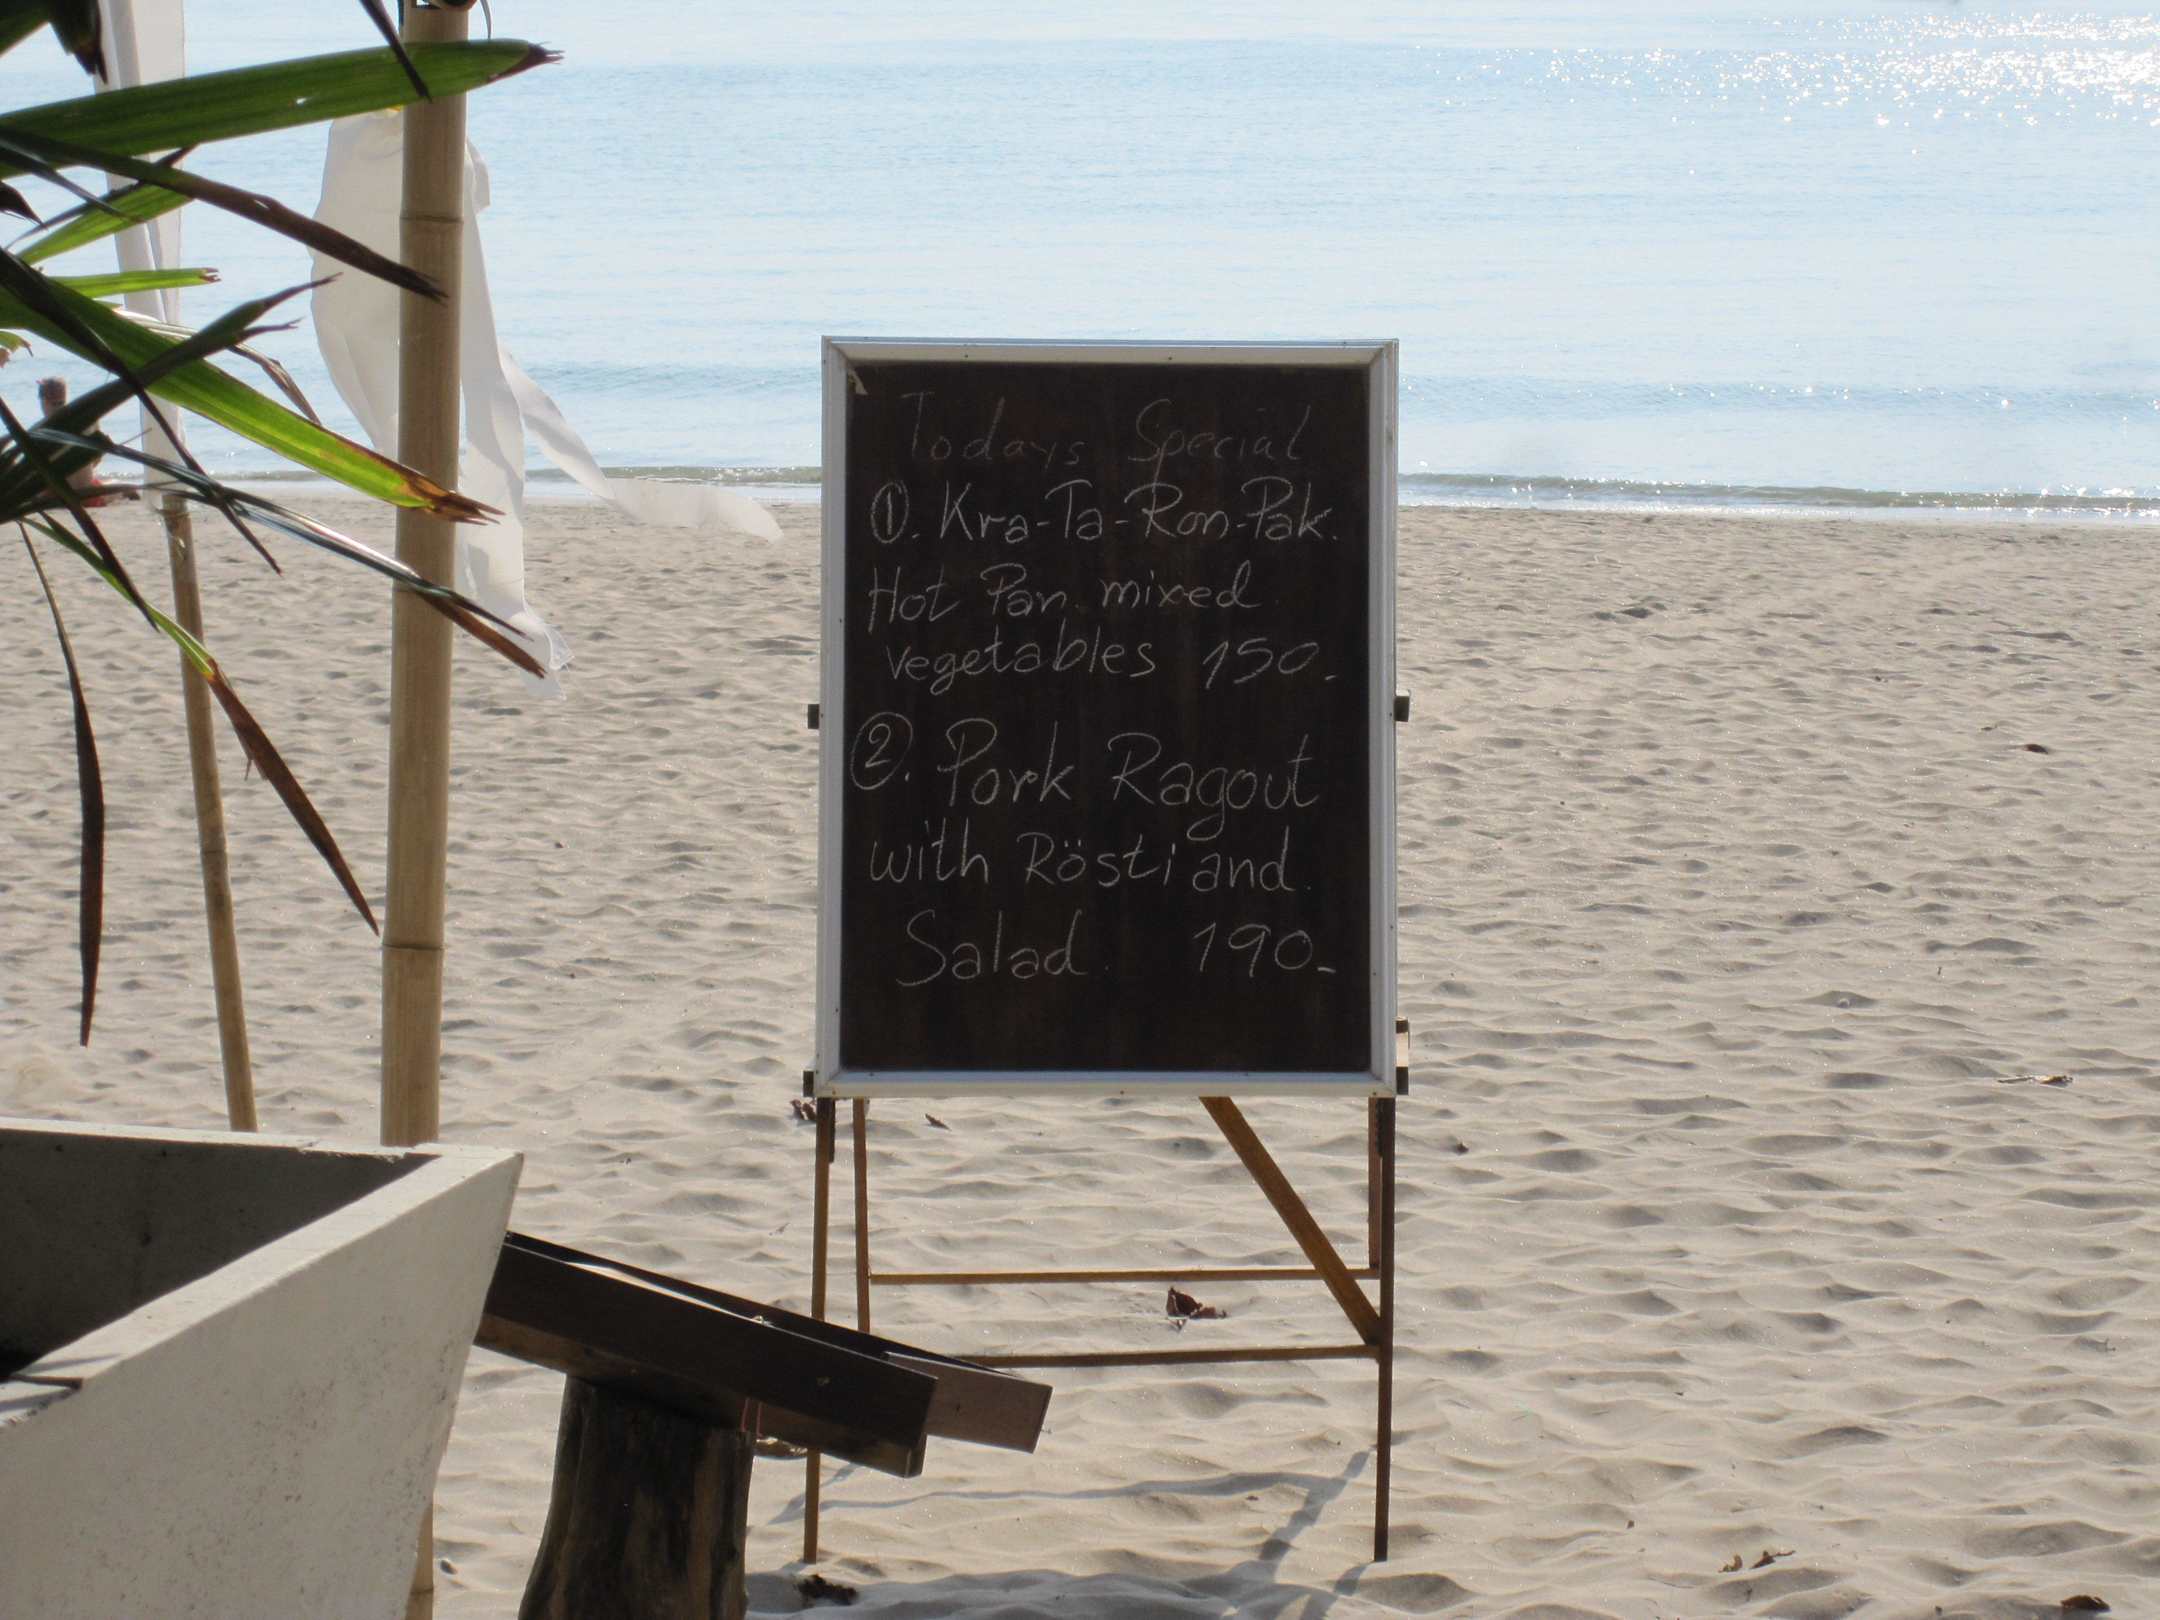 Todays Special
①. Kra-Ta-Ron-Pak.
Hot Pan. mixed.
vegetables 150.-
②. Pork Ragout
with Rösti and.
Salad. 190.-